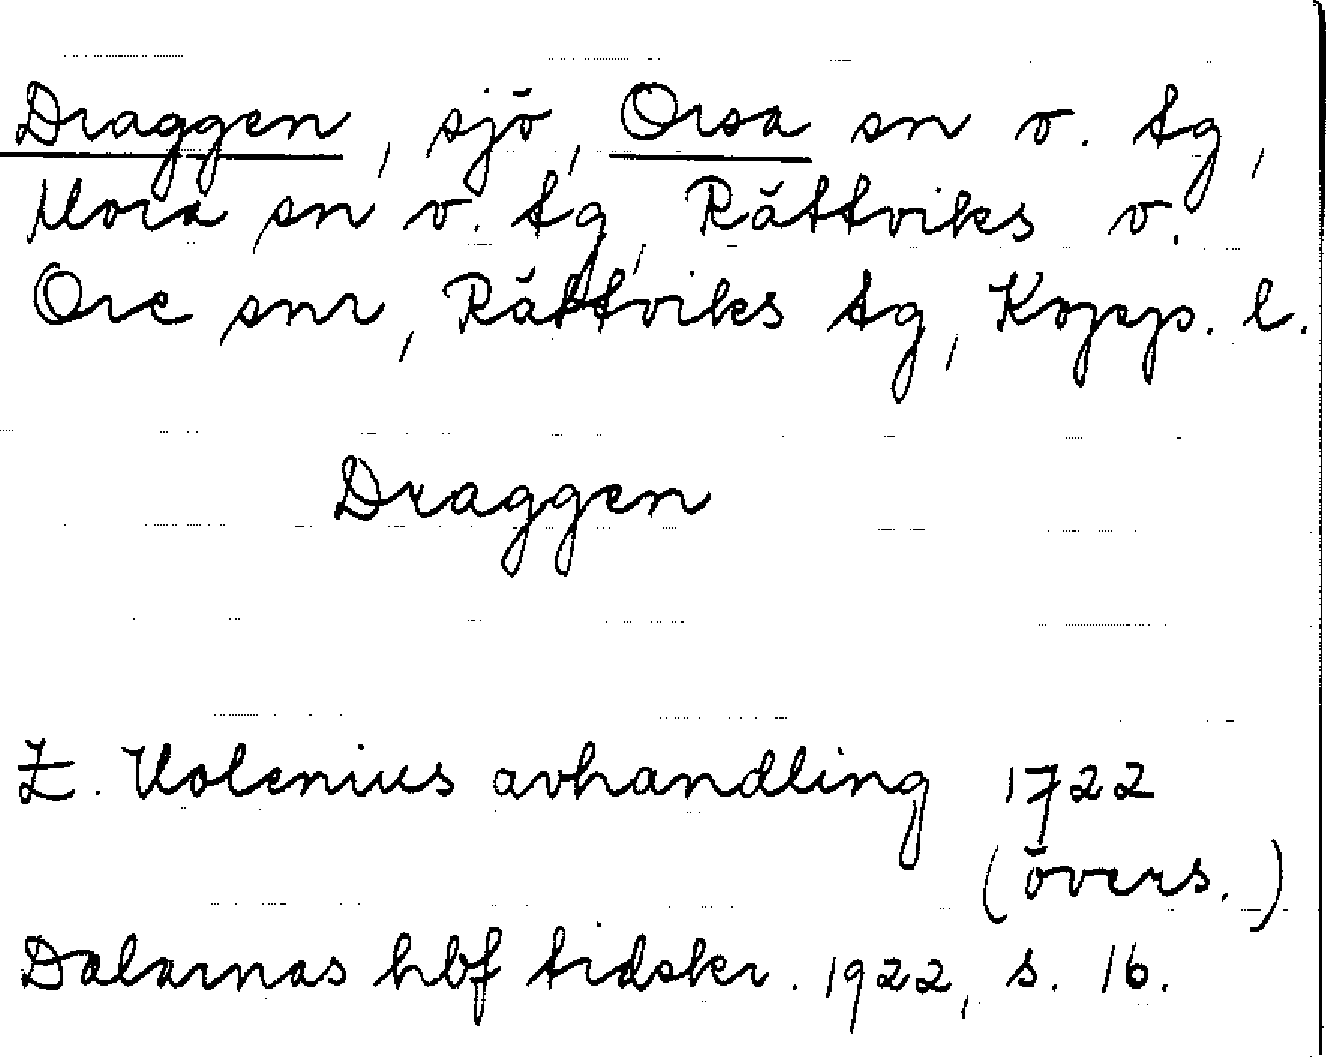 Draggen, sjö, Orsa sn o. tg,
Mora sn o. tg, Rättviks o.
Ore snr, Rättviks tg, Kopp. l.
Draggen
Z. Holenius avhandling 1722
(övers.)
Dalarnas hbf tidskr. 1922, s. 16.